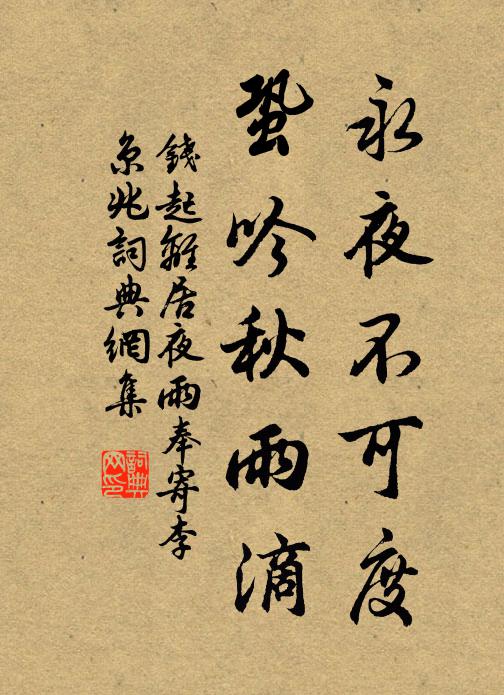 永夜不可度
蛩吟秋雨滴
錢起離居夜雨奉寄李
京兆詞典網集
詞典
网印